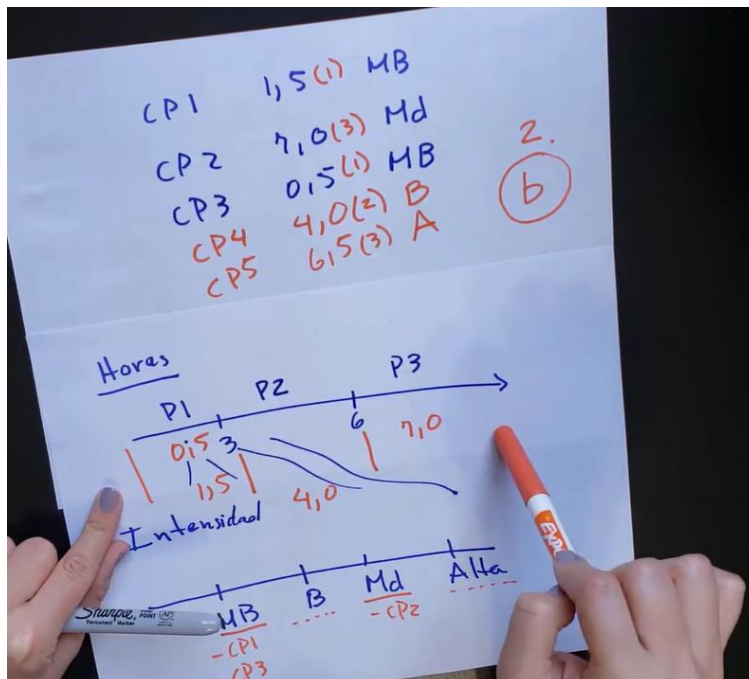 CP1 1,5(1) MB
CP2 7,0(3) Md
CP3 0,5(1) MB
CP4 4,0(2) B
CP5 6,5(3) A
2.
b
Horas
P1 P2 P3
3 6
0,5 7,0
1,5 4,0
Intensidad
MB B Md Alta
-CP1 -CP2
CP3
Sharpie
Permanent Marker
EXPO